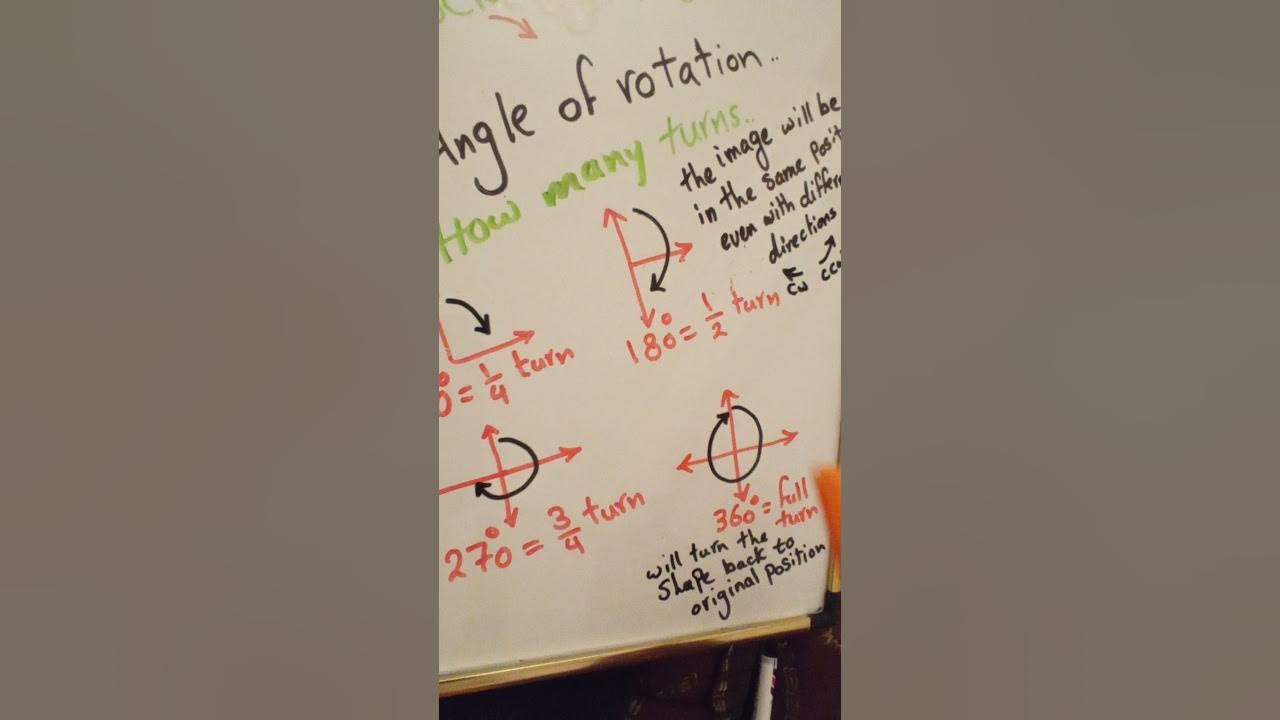 Angle of rotation..
How many turns..
the image will be
in the same posit
even with differ
directions
cw ccw
0° = 1/4 turn
180° = 1/2 turn
270° = 3/4 turn
360° = full
turn
will turn the
shape back to
original position